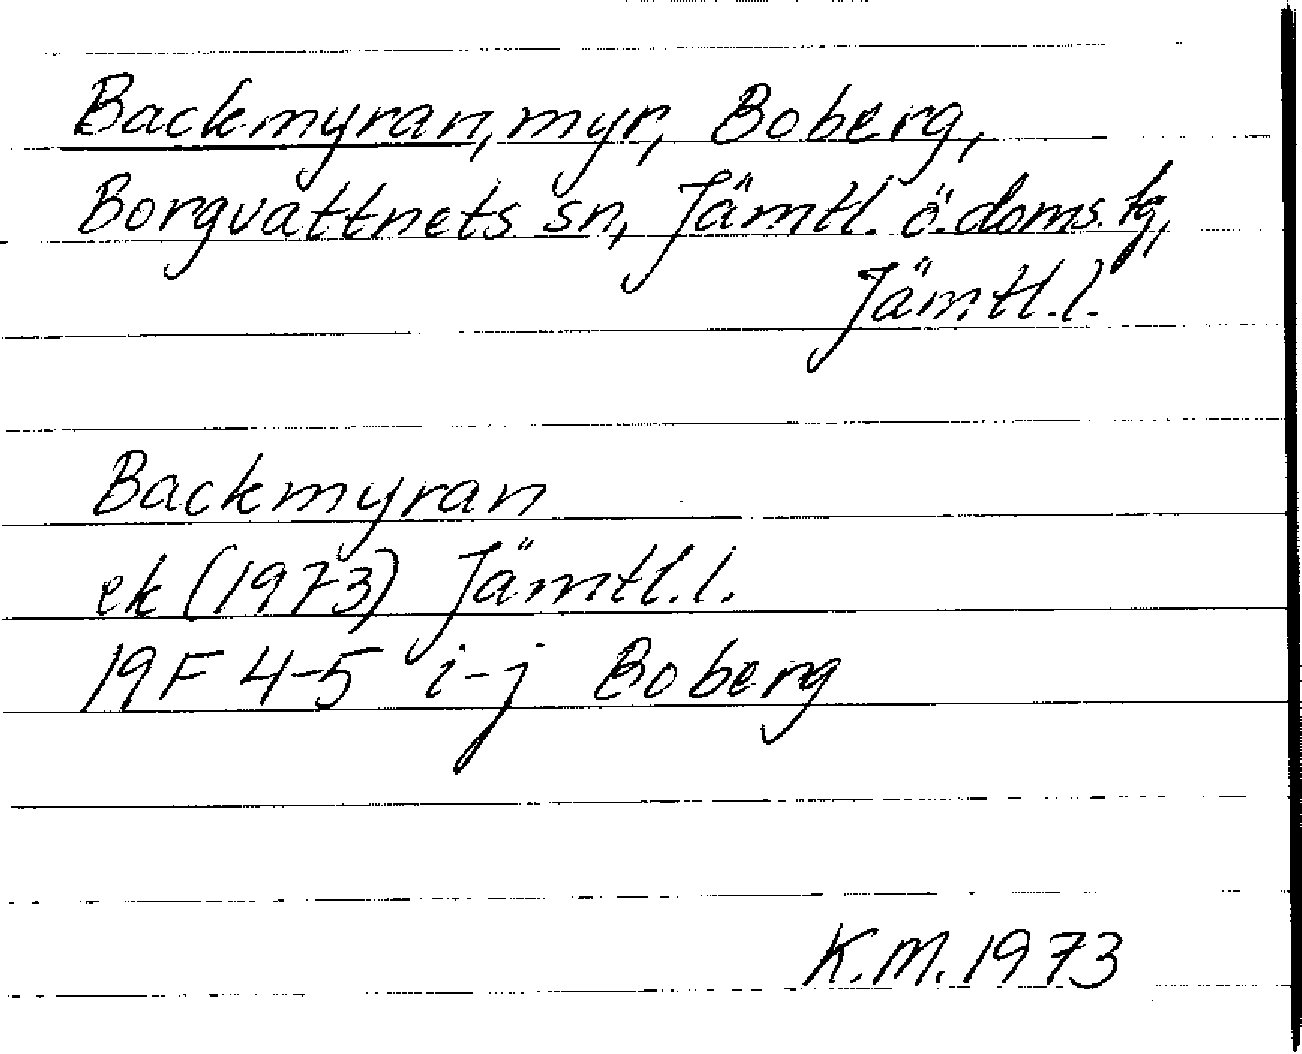 Backmyran, myr, Boberg,
Borgvattnets sn, Jämtl. ö. doms. tg,
Jämtl. l.
Backmyran
ek (1973) Jämtl. l.
19F 4-5 i-j Boberg
K.M. 1973